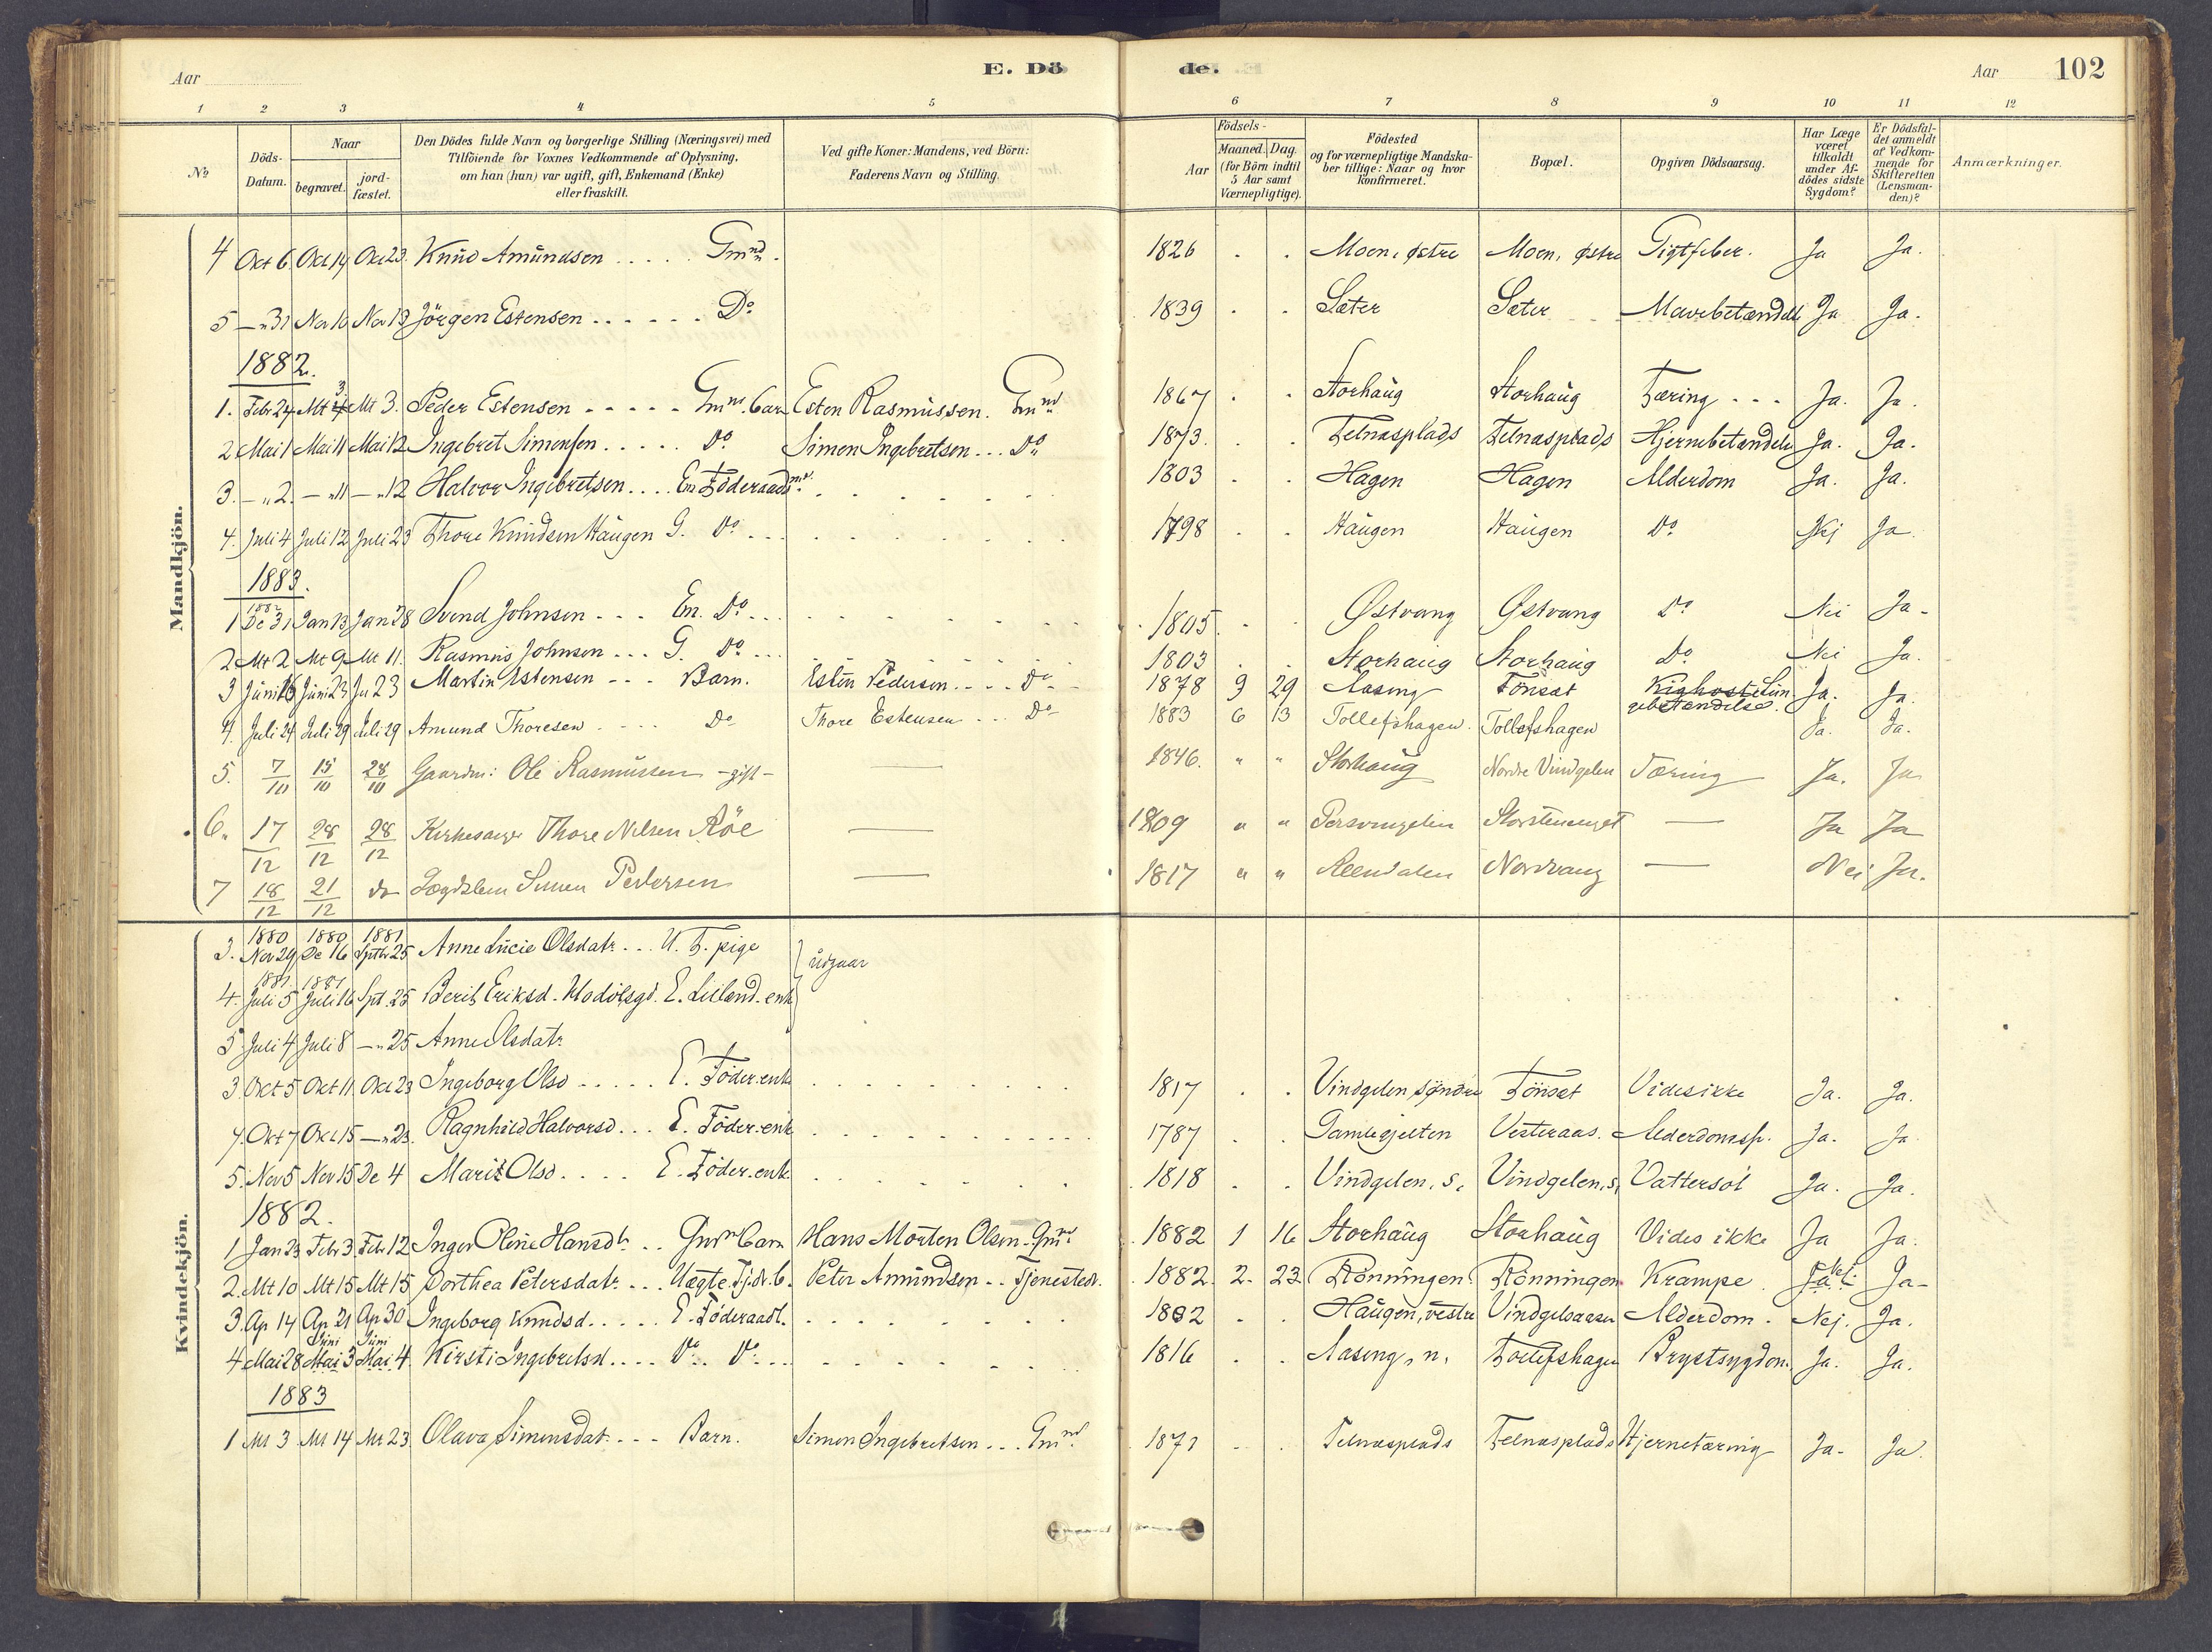 Aar
E. Dö
de.
Aar
102
1 2 3 4 5 6 7 8 9 10 11 12
№
Döds-Datum.
Naar
begravet.
jord-fæstet.
Den Dödes fulde Navn og borgerlige Stilling (Næringsvei) med
Tilföiende for Voxnes Vedkommende af Oplysning,
om han (hun) var ugift, gift, Enkemand (Enke)
eller fraskilt.
Ved gifte Koner: Mandens, ved Börn:
Faderens Navn og Stilling.
Födsels-
Aar
Maaned. Dag.
(for Börn indtil
5 Aar samt
Værnepligtige).
Födested
og for værnepligtige Mandska-
ber tillige: Naar og hvor
konfirmeret.
Bopæl.
Opgiven Dödsaarsag.
Har Læge
været
tilkaldt
under Af-
dödes sidste
Sygdom?
Er Dödsfal-
det anmeldt
af Vedkom-
mende for
Skifteretten
(Lensman-
den)?
Anmærkninger.
Mandkjön.
4 Okt 6 Okt 14 Okt 23 Knud Amundsen ..... Gmnd. 1826 . . Moen, østre Moen, østre Gigtfeber. Ja Ja.
5 —"31 Nov 10 Nov 13 Jörgen Estensen ...... Do 1839 . . Sæter Sæter Mavebetændelse Ja Ja.
1882.
1. Febr 24 Mt 3 Mt 3. Peder Estensen ..... Gmns. Barn Esten Rasmussen. Gmnd 1867 . . Storhaug Storhaug Tæring ... Ja. Ja.
2 Mai 1 Mai 11 Mai 12 Ingebret Simensen ..... Do Simen Ingebretsen ... Do 1873. . . Telnæsplads Telnæsplads Hjernebetændelse Ja. Ja.
3. —"2. —"11 —"12 Halvor Ingebretsen .... Em Föderaadsm. 1803 . . Hagen Hagen Alderdom Ja. Ja.
4. Juli 4 Juli 12 Juli 23 Thore Knudsen Haugen G. Do ... 1798 . . Haugen Haugen Do Nej Ja
1883.
1 1882 De 31 Jan 13 Jan 28 Svend Johnsen ... Em. Do ... 1805. . . Østvang Østvang Do Nei Ja-
2 Mt 2 Mt 9 Mt 11. Rasmus Johnsen ... G. Do ... 1803 . . Storhaug Storhaug Do Nei Ja.
3 Juni 16 Juni 23 Ju 23 Martin Estensen ... Barn. Esten Pedersen .... Do 1878 9 29 Aaseng Tönset Kighoste Lun-
gebetændelse. Ja. Ja.
4. Juli 24 Juli 29 Juli 29 Amund Thoresen .... Do Thore Estensen ... Do 1883 6 13 Tollefshagen. Tollefshagen Ja. Ja.
5. 7/10 15/10 28/10 Gaardm: Ole Rasmussen -gift- — 1846. " " Storhaug Nordre Vindgelen Tæring Ja. Ja
6. 17/12 28/12 28/12 Kirkesanger Thore Nilsen Röe — 1809 " " Storsteneuget — Ja Ja
7 18/12 21/12 do Lægdslem Simen Pedersen — 1817 " " Reendalen Nordvang — Nei Ja.
Kvindekjön.
3. 1880 Nov 29 1880 De 16 1881 Sptbr 25 Anne Lucie Olsdatr. .. U. T. pige } udgaar
4. 1881 Juli 5 1881 Juli 16 Spt. 25 Berit Eriksd. E. enk
5 Juli 4 Juli 8 —"25 Anne Olsdatr
3 Okt 5 Okt 11 Okt 23 Ingeborg Olsd ..... E. Föder.enk 1817 . . Vindgelen söndre Tönset Vides ikke Ja. Ja.
4. Okt 7 Okt 15 —"23. Ragnhild Halvorsd ... E. Föder.enk 1787 . . Gamlegjelten Vesteraas. Alderdomssv. Ja. Ja
5. Nov 5 Nov 15 De 4 Marit Olsd ..... E. Föder.enk. 1818 . . Vindgelen, s. Vindgelen, s. Vattersot Ja. Ja.
1882.
1 Jan 23 Febr 3 Febr 12 Inger Oline Hansdtr. .. Gmns Barn Hans Morten Olsen. Gmnd 1882 1 16 Storhaug Storhaug Vides ikke Ja Ja.
2. Mt 10 Mt 15 Mt 15 Dorthea Petersdatr. ... Uægte Tjdr. b. Peter Amundsen .. Tjenestedr. 1882. 2. 23. Rönningen Rönningen Krampe Ja-
3. Ap 14 Ap 21 Ap 30 Ingeborg Knudsd ..... E. Föderaadk. 1802 . . Haugen, vestre Vindgelsaasen Alderdom. Nej. Ja.
4 Mai 28 Juni Mai 3 Juni Mai 4. Kirsti Ingebretsd .... Do. Do ... 1816 . . Aaseng, n. Tollefshagen Brystsygdom. Ja. Ja.
1883
1 Mt 3 Mt 14 Mt 23. Olava Simensdat. ... Barn. Simen Ingebretsen ... Gmnd 1871 . . Telnæsplads Telnæsplads Hjernetæring Ja- Ja